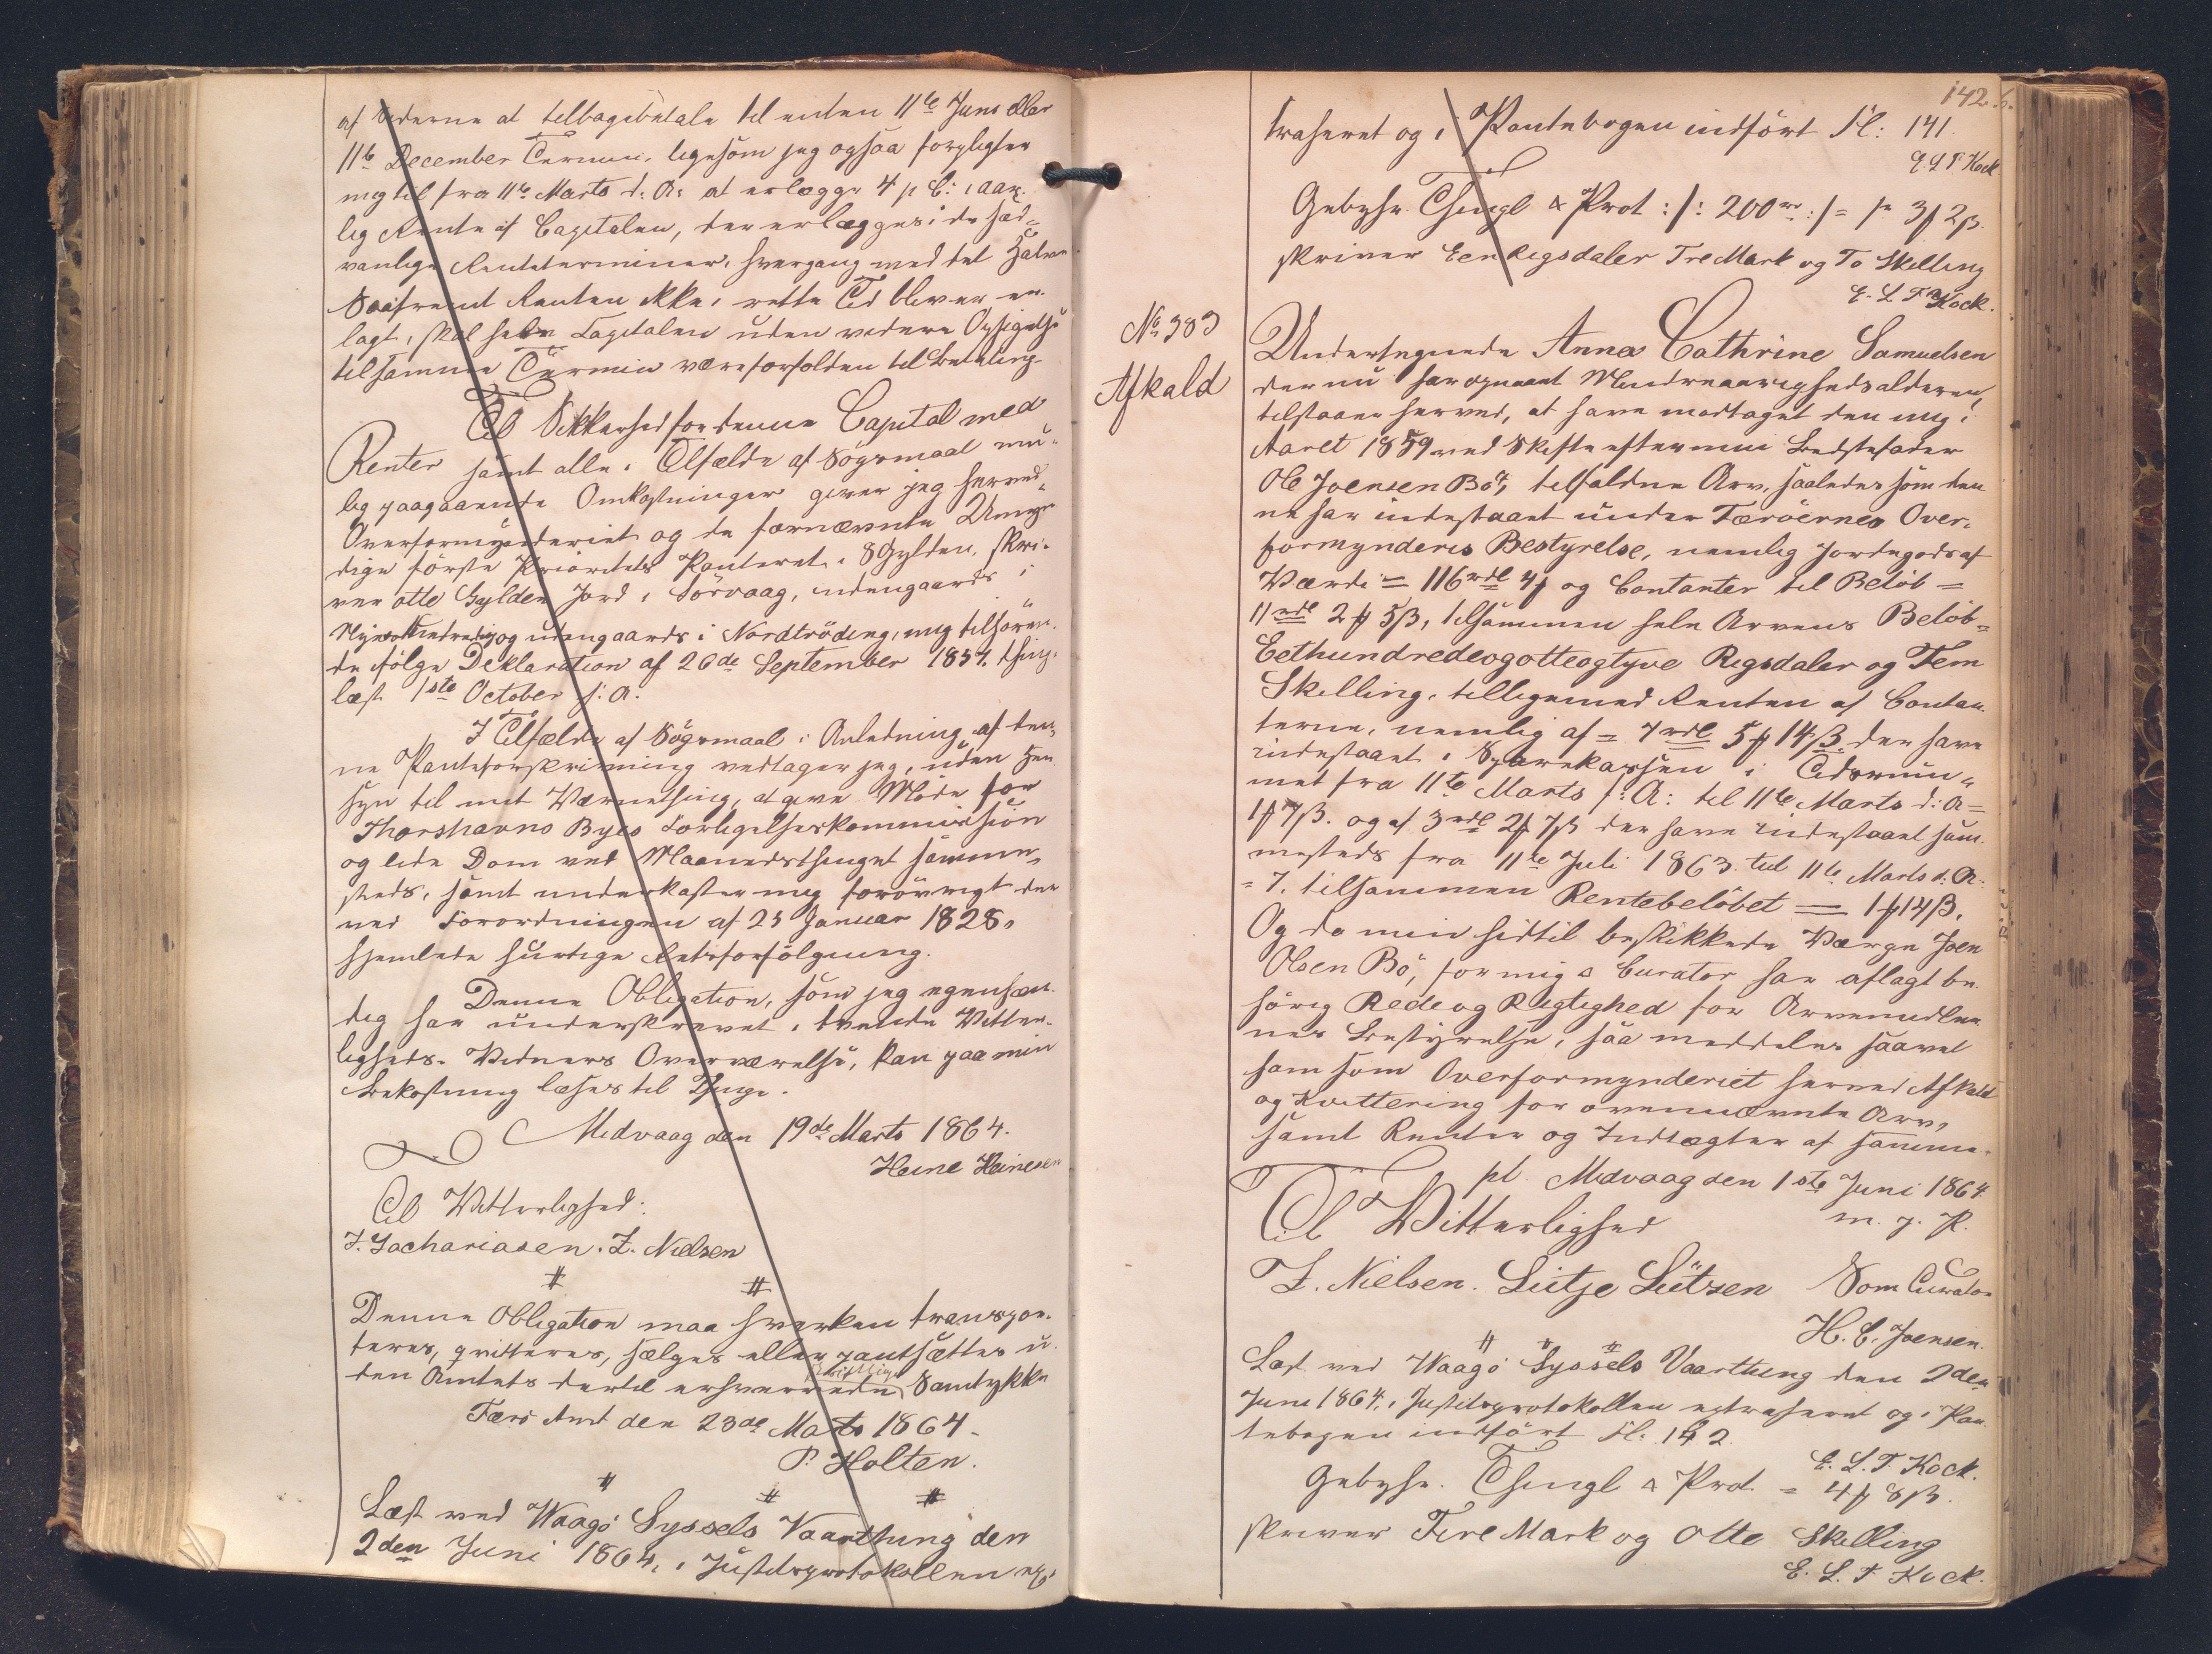 af Siderne at tilbagebetale til enten 11te Juni eller
11te December Termin, ligesom jeg ogsaa forpligter
mig til fra 11te Marts d: A: at erlægge 4 p C: i aar-
lig Rente af Capitalen, der erlægges i de sæd-
vanlige Renteterminer, hvergang med det Halve.
Saafremt Renten ikke i rette Tid bliver er-
lagt, skal hele Capitalen uden videre Opsigelse
til samme Termin være forfalden til Betaling.
Til Sikkerhed for denne Capital med
Renter samt alle i Tilfælde af Søgsmaal mu-
lig paagaaende Omkostninger giver jeg herved
Overformynderiet og de fornævnte Umyn-
dige første Prioritets Panteret i 8 Gylden, skri-
ver otte Gylden Jord i Sörvaag, indengaards i
og udengaards i Nordtröding, mig tilhøren-
de ifølge Deklaration af 20de September 1854, thing-
læst 1ste October s: A.
I Tilfælde af Søgsmaal i Anledning af den-
ne Panteforskrivning vedtager jeg, uden Hen-
syn til mit Værnething, at give Møde for
Thorshavns Byes Forligelseskommission
og lide Dom ved Maanedsthinget samme-
steds, samt underkaster mig forøvrigt den
ved Forordningen af 25 Januar 1828
hjemlede hurtige Retsforfølgning.
Denne Obligation, som jeg egenhæn-
dig har underskrevet i tvende Vitter-
ligheds-Vidners Overværelse, kan paa min
Bekostning læses til Thinge.
Midvaag den 19de Marts 1864.
Heine Heinesen
Til Vitterlighed:
J. Zachariasen. Z. Nielsen
Denne Obligation maa hverken transpor-
teres, qvitteres, sælges eller pantsættes u-
den Amtets dertil erhvervede skriftlige Samtykke
Færø Amt den 23de Marts 1864.
P. Holten.
Læst ved Waagø Syssels Vaarthing den
2den Juni 1864, i Justitsprotokollen ex-
142.
traheret og i Pantebogen indført Fl: 141.
E L T Kock
Gebyhr. Thingl & Prot :/: 200 rd :/ = 1 rd 3 ₰ 2 ß.
skriver Een Rigsdaler Tre Mark og To Skilling
E. L. T. Kock.
No 383
Afkald
Undertegnede Anna Cathrine Samuelsen
der nu har opnaaet Mindreaarighedsalderen,
tilstaaer herved, at have modtaget den mig i
Aaret 1859 ved Skifte efter min Bedstefader
Ole Joensen Bö, tilfaldne Arv, saaledes som den-
ne har indestaaet under Færöernes Over-
formynderis Bestyrelse, nemlig Jordegods af
Værdi = 116 rdl 4 ₰ og Contanter til Beløb =
11 rdl 2 ₰ 5 ß, tilsammen hele Arvens Beløb =
Eethundredeogotteogtyve Rigsdaler og Fem
Skilling, tilligemed Renten af Contan-
terne, nemlig af = 7 rdl 5 ₰ 14 ß der have
indestaaet i Sparekassen i Tidsrum-
met fra 11te Marts f: A: til 11te Marts d: A =
1 ₰ 7 ß. og af 3 rdl 2 ₰ 7 ß der have indestaaet sam-
mesteds fra 11te Juli 1863 til 11te Marts d. A.
= 7. tilsammen Rentebeløbet = 1 ₰ 14 ß.
Og da min hidtil beskikkede Værge Joen
Olsen Bö, for mig & Curator har aflagt be-
hørig Rede og Rigtighed for Arvemidler-
nes Bestyrelse, saa meddeles saavel
ham som Overformynderiet herved Afkald
og Kvittering for ovennævnte Arv,
samt Renter og Indtægter af samme.
pl. Midvaag den 1ste Juni 1864.
Til Vitterlighed m. f. P.
Z. Nielsen. Lütje Lützen Som Curator
H. C. Joensen.
Læst ved Waagø Syssels Vaarthing den 2den
Juni 1864, i Justitsprotokollen extraheret og i Pan-
tebogen indført Fl: 142.
E. L. T. Kock.
Gebyhr. Thingl & Prot = 4 ₰ 8 ß.
skriver Fire Mark og Otte Skilling
E. L. T Kock.